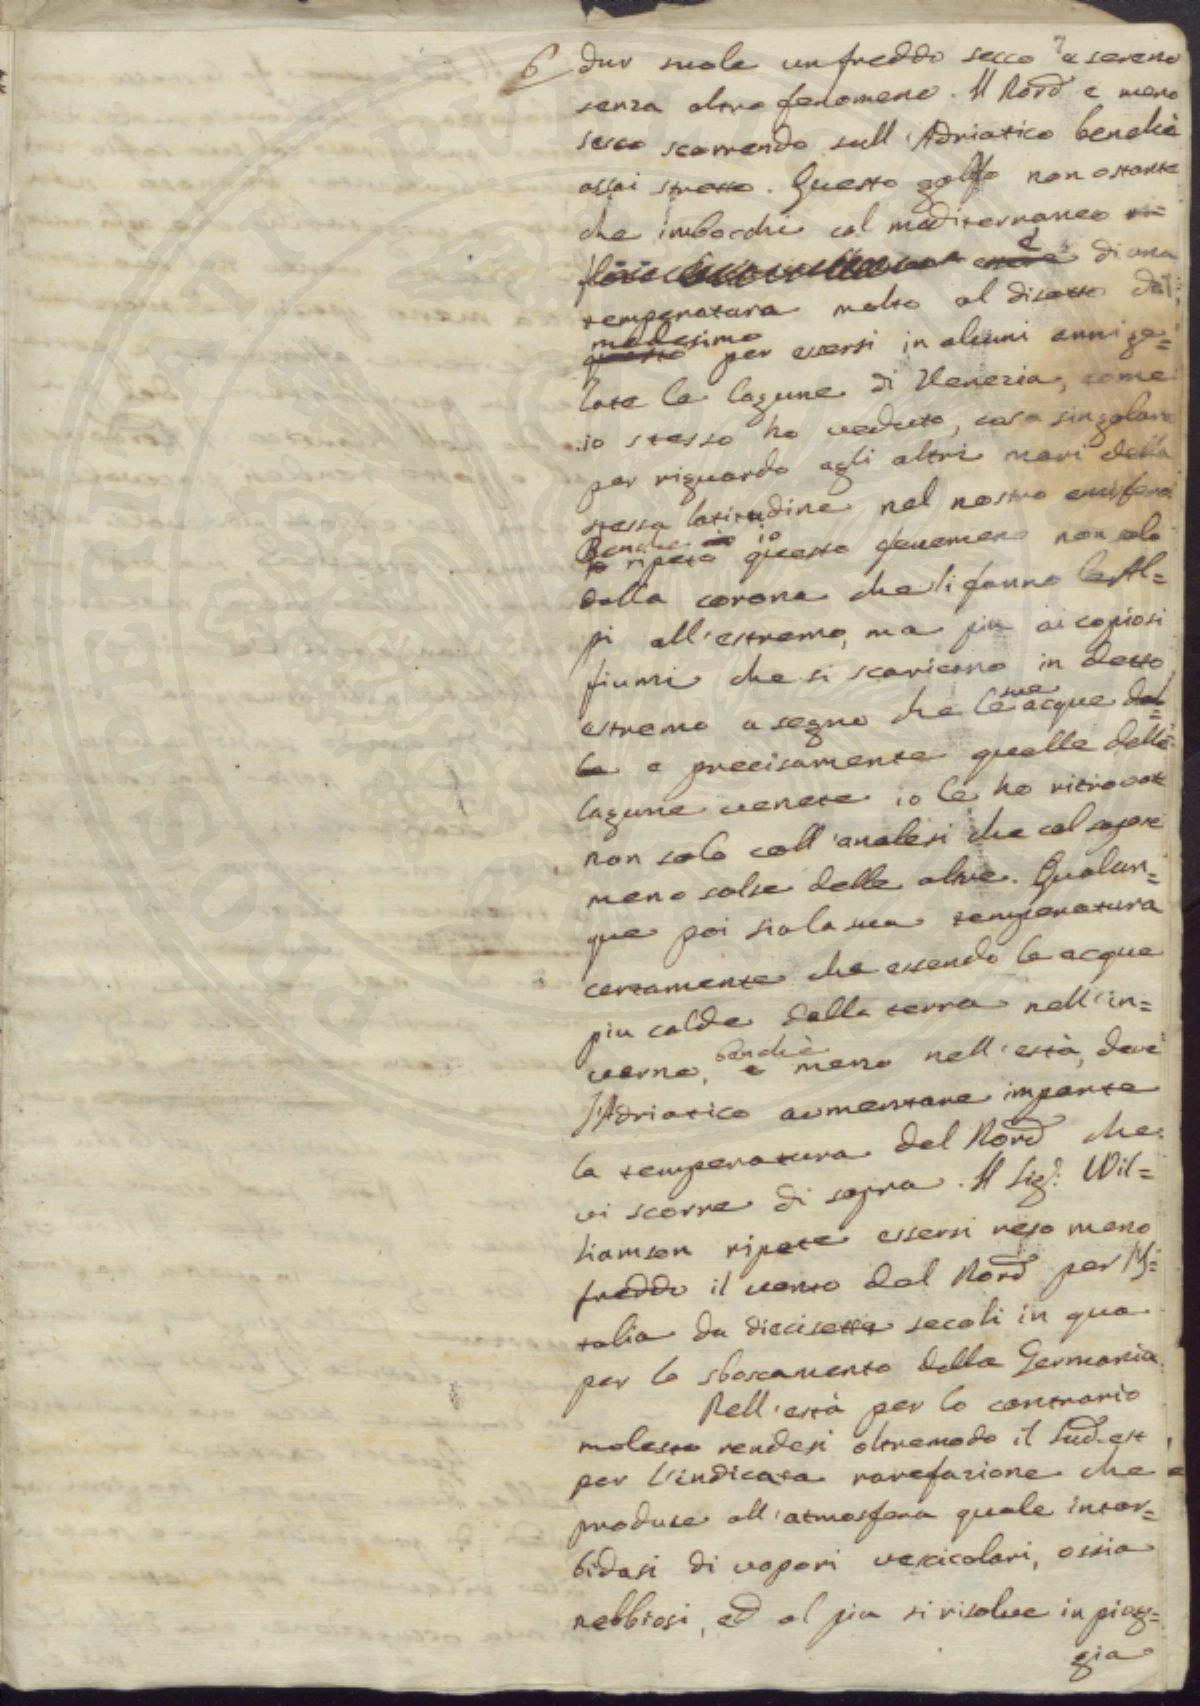 7
6 dur suole un freddo secco e sereno
senza altro fenomeno. Il Nord e meno
secco scorrendo sull'Adriatico benchè
assai stretto. Questo golfo non ostante
che imbocchi col mediterraneo
è di una
temperatura molto al disotto del
medesimo
questo per essersi in alcuni anni ge=
late le lagune di Venezia, come
io stesso ho veduto, cosa singolare
per riguardo agli altri mari della
stessa latitudine nel nostro emisfero
Benche io
io ripeto questo fenomeno non solo
dalla corona che li fanno le Al=
pi all'estremo, ma piu ai copiosi
fiumi che si scaricano in detto
estremo a segno che le sue acque del=
le e precisamente quelle delle
lagune venete io le ho ritrovate
non solo coll'analesi che col sapore
meno salse delle altre. Qualun=
que poi sia la sua temperatura
certamente che essendo le acque
piu calde della terra nell'in=
verno, benchè e meno nell'està, deve
l'Adriatico aumentare in parte
la temperatura del Nord che
vi scorre di sopra. Il Sigr. Wil=
liamson ripete essersi reso meno
freddo il vento del Nord per l'I=
talia da diecisette secoli in qua
per lo sboscamento della Germania.
Nell'està per lo contrario
molesto rendesi oltremodo il Sud-est
per l'indicata rarefazione che
produce all'atmosfera quale intor=
bidasi di vapori vescicolari, ossia
nebbiosi, ed al piu si risolve in piog=
gia